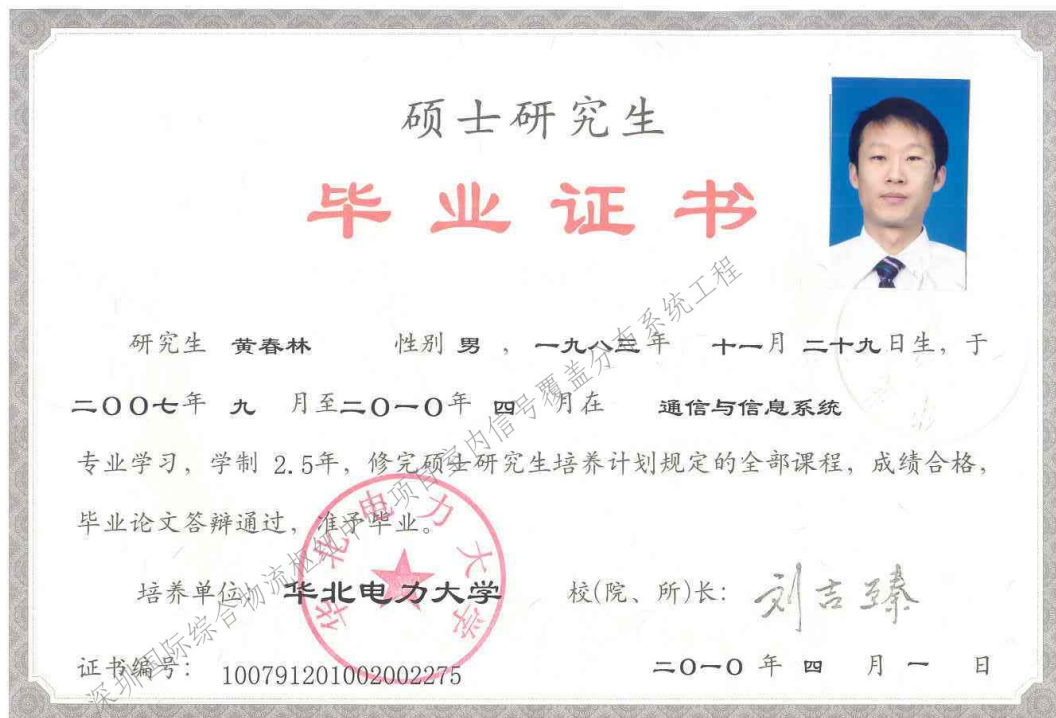 硕士研究生
毕业证书
研究生 黄春林 性别 男 ，一九八三年 十一月 二十九日生，于
二〇〇七年 九 月至二〇一〇年 四 月在 通信与信息系统
专业学习，学制 2.5年，修完硕士研究生培养计划规定的全部课程，成绩合格，
毕业论文答辩通过，准予毕业。
培养单位：华北电力大学 校(院、所)长：刘吉臻
证书编号：100791201002002275 二〇一〇 年 四 月 一 日
华北电力大学
深圳国际综合物流枢纽中心项目室内信号覆盖分布系统工程